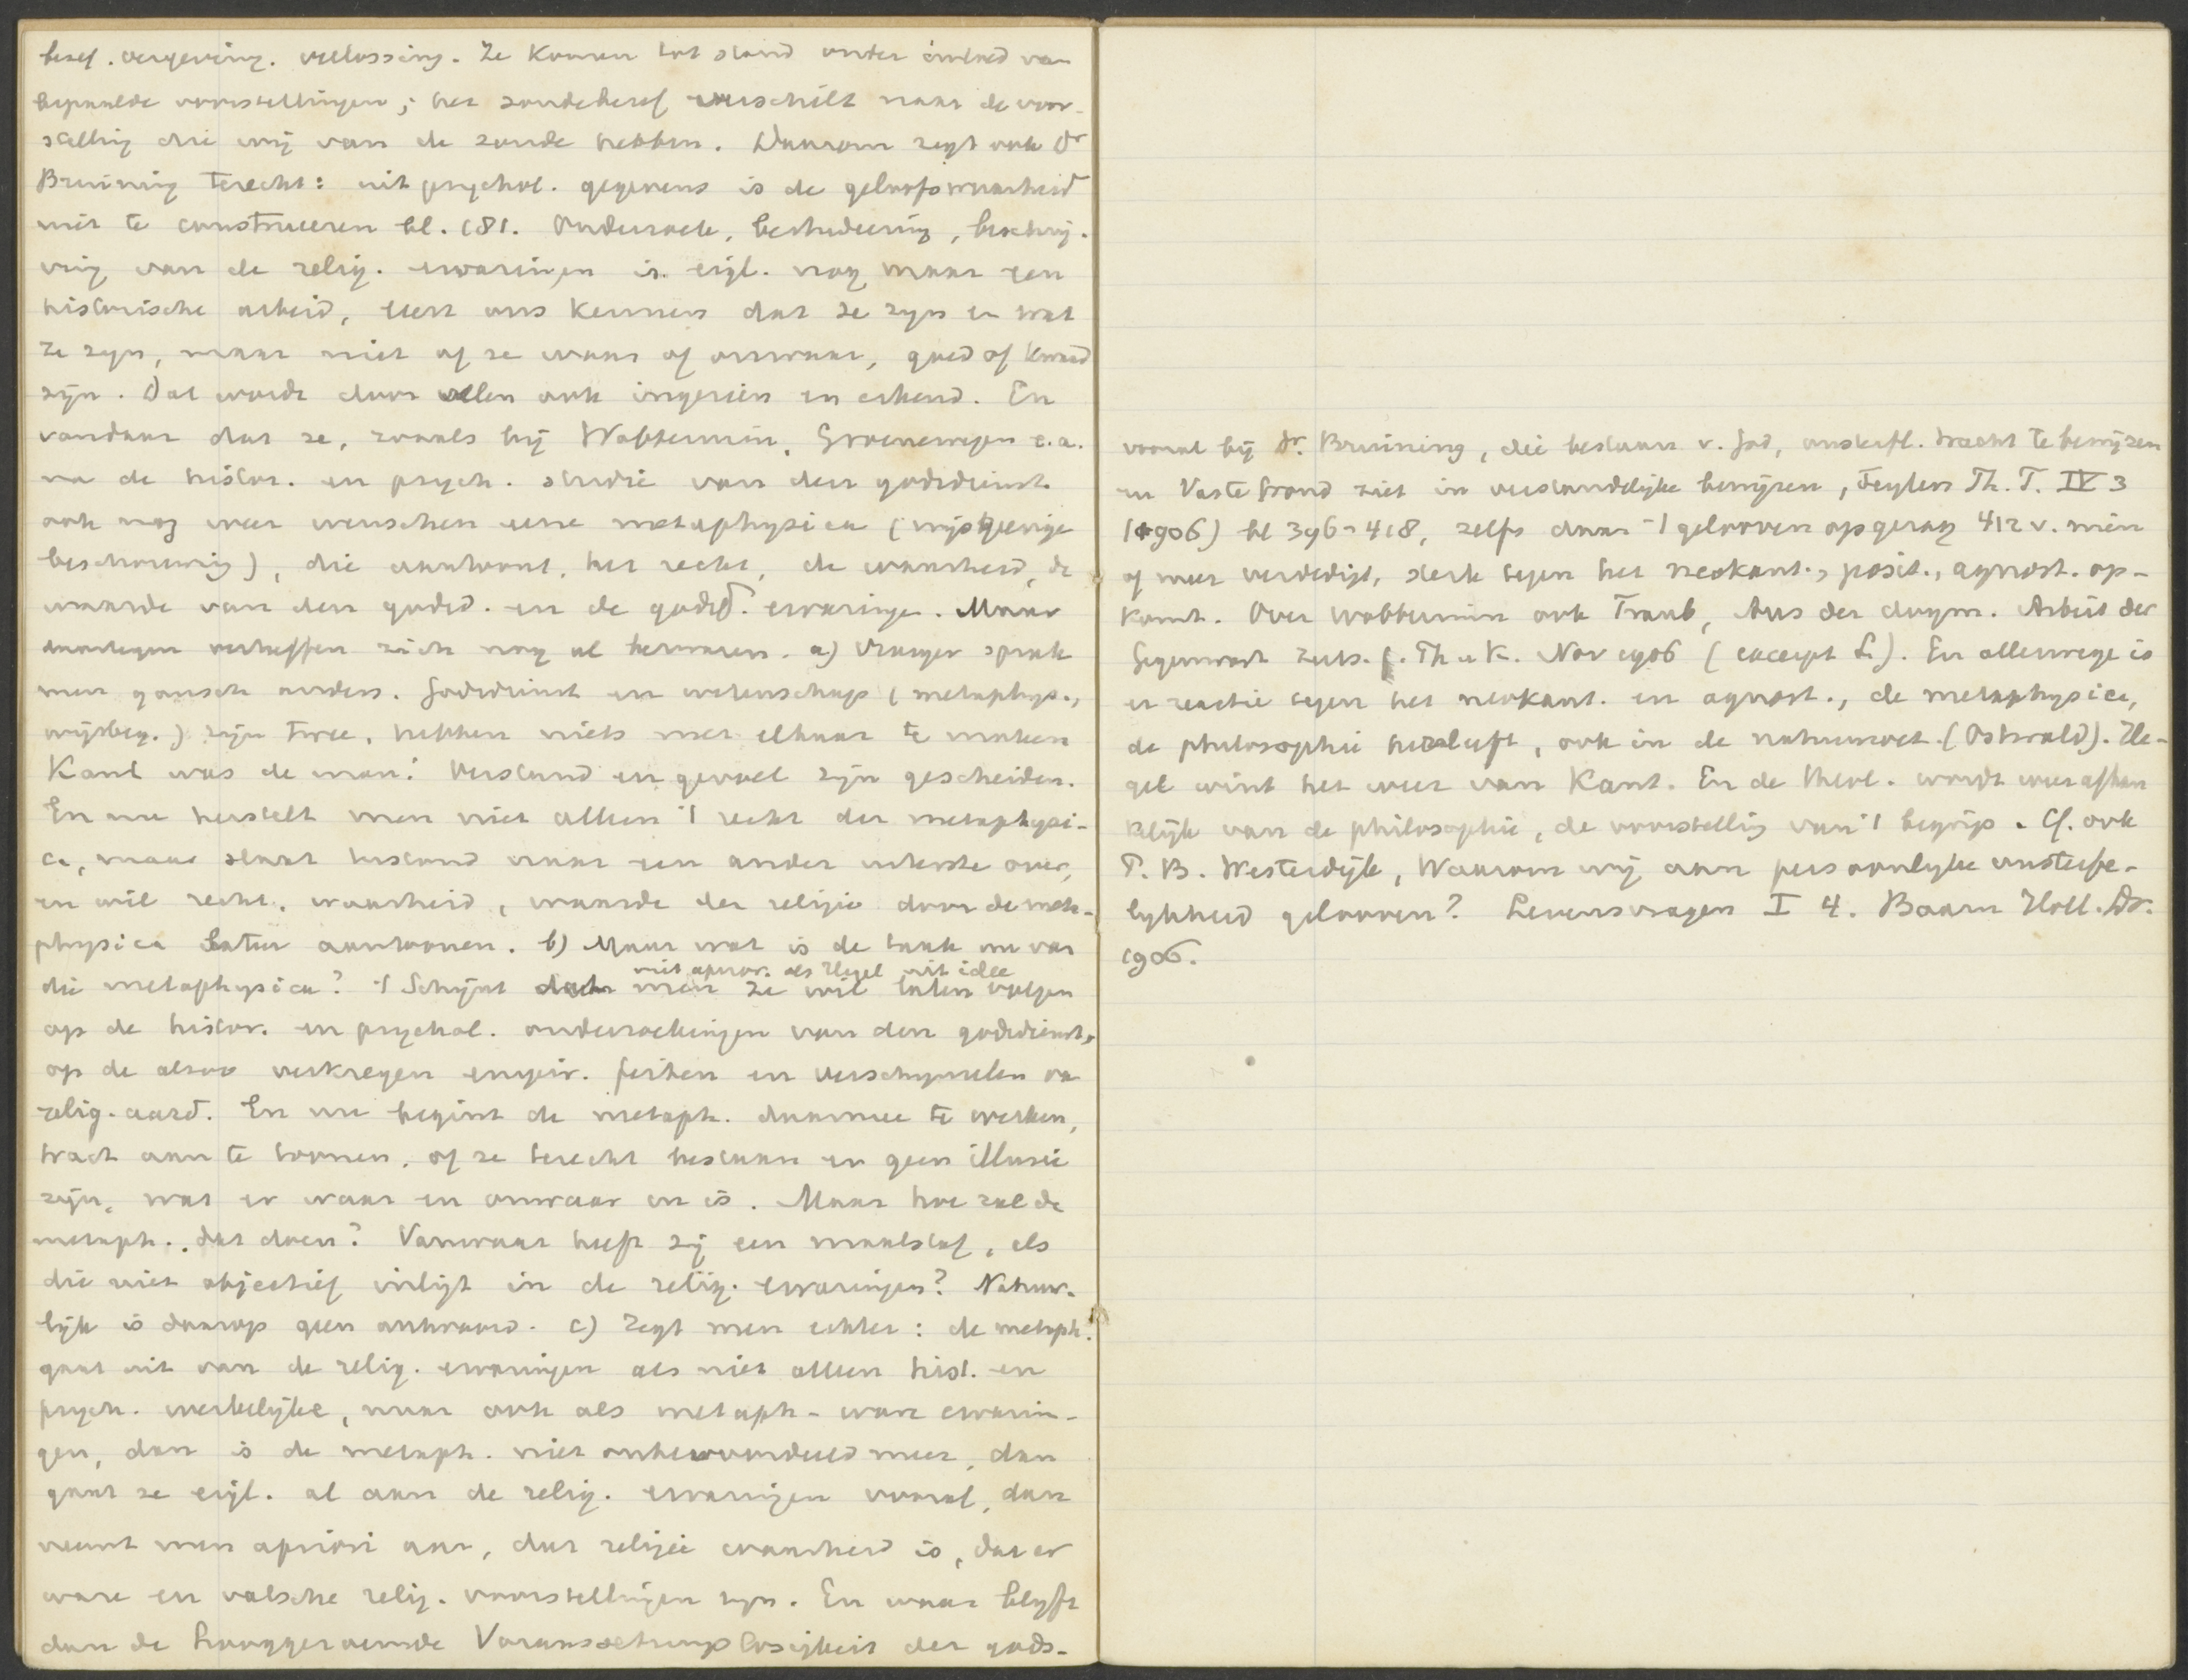 besef. vergeving. verlossing. Ze komen tot stand onder invloed van
bepaalde voorstellingen; het zondebesef verschilt naar de voor-
stelling die wij van de zonde hebben. Daarom zegt ook Dr
Bruining terecht: uit psychol. gegevens is de geloofswaarheid
niet te construeeren bl. 181. Onderzoek, bestudeering, beschrij-
ving van de relig. ervaringen is eigl. nog maar een
historische arbeid, leert ons kennen dat ze zijn en wat
ze zijn, maar niet of ze waar of onwaar, goed of kwaad
zijn. Dat wordt door velen ook ingezien en erkend. En
vandaar dat ze, zooals bij Wobbermin, Groenewegen e.a.
na de histor. en psych. studie van den godsdienst
ook nog weer wenschen eene metaphysica (wijsgeerige
beschouwing), die aantoont, het recht, de waarheid, de
waarde van den godsd. en de godsd. ervaringen. Maar
daartegen verheffen zich nog al bezwaren. a) Vroeger sprak
men gansch anders. Godsdienst en wetenschap (metaphys.,
wijsbeg.) zijn twee, hebben niets met elkaar te maken
Kant was de man! Verstand en gevoel zijn gescheiden.
En nu herstelt men niet alleen 't recht der metaphysi-
ca, maar slaat terstond naar een ander uiterste over,
en wil recht, waarheid, waarde der religie door de meta-
physica laten aantoonen. b) Maar wat is de taak nu van
niet aprior. als Hegel uit idee
die metaphysica? 't Schijnt dat men ze wil laten volgen
op de histor. en psychol. onderzoekingen van den godsdienst,
op de alzoo verkregen empir. feiten en verschijnselen van
relig. aard. En nu begint de metaph. daarmee te werken,
tracht aan te toonen, of ze terecht bestaan en geen illusie
zijn, wat er waar en onwaar in is. Maar hoe zal de
metaph. dat doen? Vanwaar heeft zij een maatstaf, als
die niet objectief inligt in de relig. ervaringen? Natuur-
lijk is daarop geen antwoord. c) Zegt men echter: de metaph.
gaat uit van de relig. ervaringen als niet alleen hist. en
psych. werkelijke, maar ook als metaph-ware ervarin-
gen, dan is de metaph. niet onbevooroordeeld meer, dan
gaat ze eigl. al aan de relig. ervaringen vooraf, dan
neemt men apriori aan, dat religie waarheid is, dat er
ware en valsche relig. voorstellingen zijn. En waar blijft
dan de hooggeroemde Voraussetzungslosigkeit der gods-
vooral bij Dr. Bruining, die bestaan v. God, onsterfl. tracht te bewijzen
en Vaste Grond ziet in verstandelijke bewijzen, Teylers Th. T. IV 3
(1906) bl 396-418, zelfs daar 't gelooven op gezag 412 v. min
of meer verdedigt, sterk tegen het neokant., posit., agnost. op-
komt. Over Wobbermin ook Traub, Aus der dogm. Arbeit der
Gegenwart Zeits. f. Th u K. Nov 1906 (excerpt L). En allerwege is
er reactie tegen het neokant. en agnost., de metaphysica,
de philosophie herleeft, ook in de natuurwet. (Ostwald). He-
gel wint het weer van Kant. En de theol. wordt weer afhan
kelijk van de philosophie, de voorstelling van 't begrip. Cf. ook
T. B. Westerdijk, Waarom wij aan persoonlijke onsterfe-
lijkheid gelooven? Levensvragen I 4. Baarn Holl. Dr.
1906.